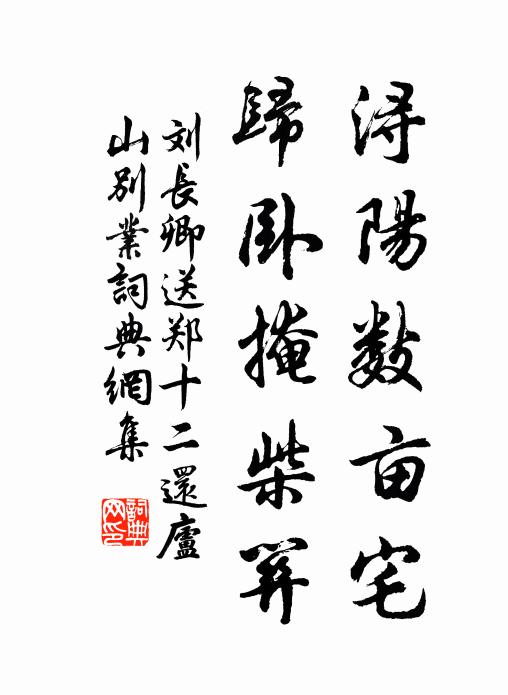 浔陽数亩宅
歸卧掩柴關
刘長卿送郑十二還廬
山别業詞典網集
詞典
网印